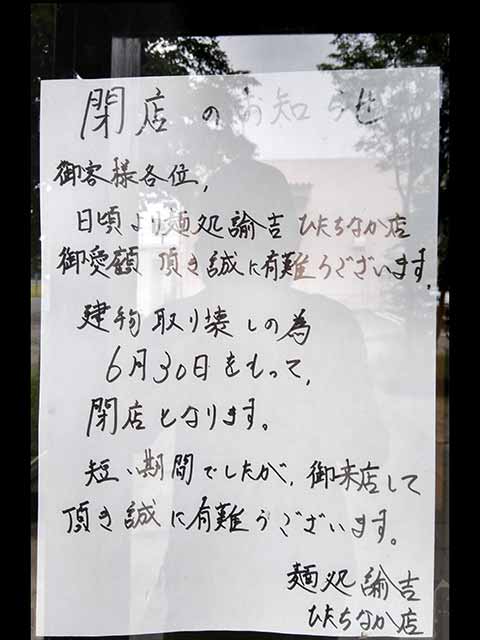 閉店のお知らせ
御客様各位,
日頃より麺処諭吉ひたちなか店
御愛顧頂き誠に有難うございます。
建物取り壊しの為
6月30日をもって,
閉店となります。
短い期間でしたが,御来店して
頂き誠に有難うございます。
麺処諭吉
ひたちなか店